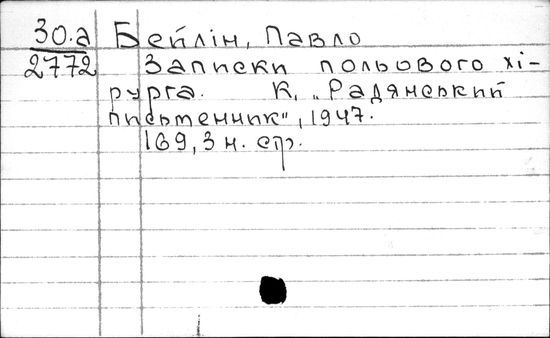 30.а Бейлін, Павло
2772 Записки польового хі-
рурга. К, „Радянський
письменник", 1947.
169, 3 н. стр.